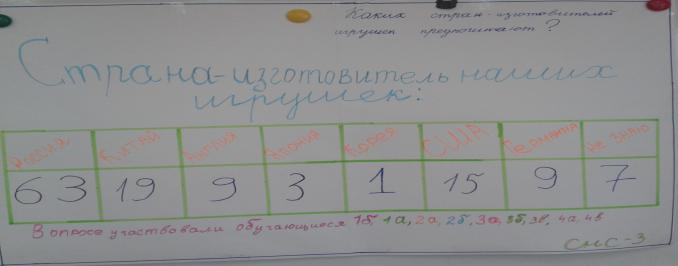 Каких стран-изготовителей
игрушек предпочитают?
Страна-изготовитель наших
игрушек:
Россия Китай Англия Япония Корея США Германия Не знаю
63 19 9 3 1 15 9 7
В опросе участвовали обучающиеся 1б, 1а, 2а, 2б, 3а, 3б, 3в, 4а, 4в
СМС-3